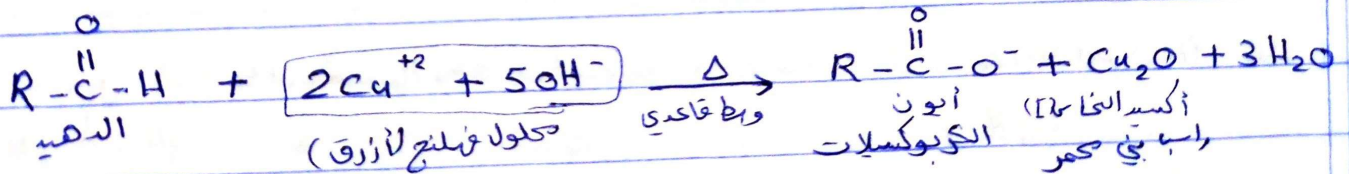 O
||
O
||
R - C - H + 2Cu⁺² + 5OH⁻ Δ→ R - C - O⁻ + Cu₂O + 3H₂O
الدهيد (محلول فهلنج لأزرق) وسط قاعدي أيون الكربوكسيلات (أكسيد النحاس I)
راسب بني محمر